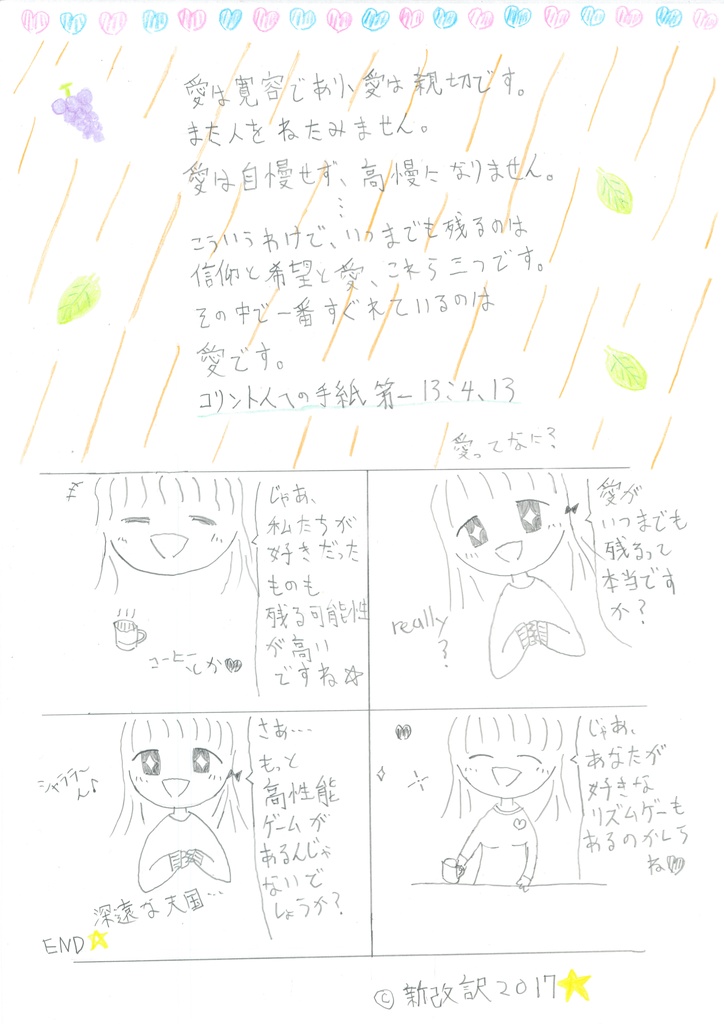 愛は寛容であり、愛は親切です。
また人をねたみません。
愛は自慢せず、高慢になりません。
⋮
こういうわけで、いつまでも残るのは
信仰と希望と愛、これら三つです。
その中で一番すぐれているのは
愛です。
コリント人への手紙 第一 13:4、13
愛ってなに?
愛が
いつまでも
残るって
本当です
か?
really
?
じゃあ、
私たちが
好きだった
ものも
残る可能性
が高い
ですね☆
コーヒー
とか♥
じゃあ、
あなたが
好きな
リズムゲーも
あるのかしら
ね♥
さあ…
もっと
高性能
ゲームが
あるんじゃ
ないで
しょうか?
シャララ〜
ん♪
深遠な天国…
END★
©新改訳2017★